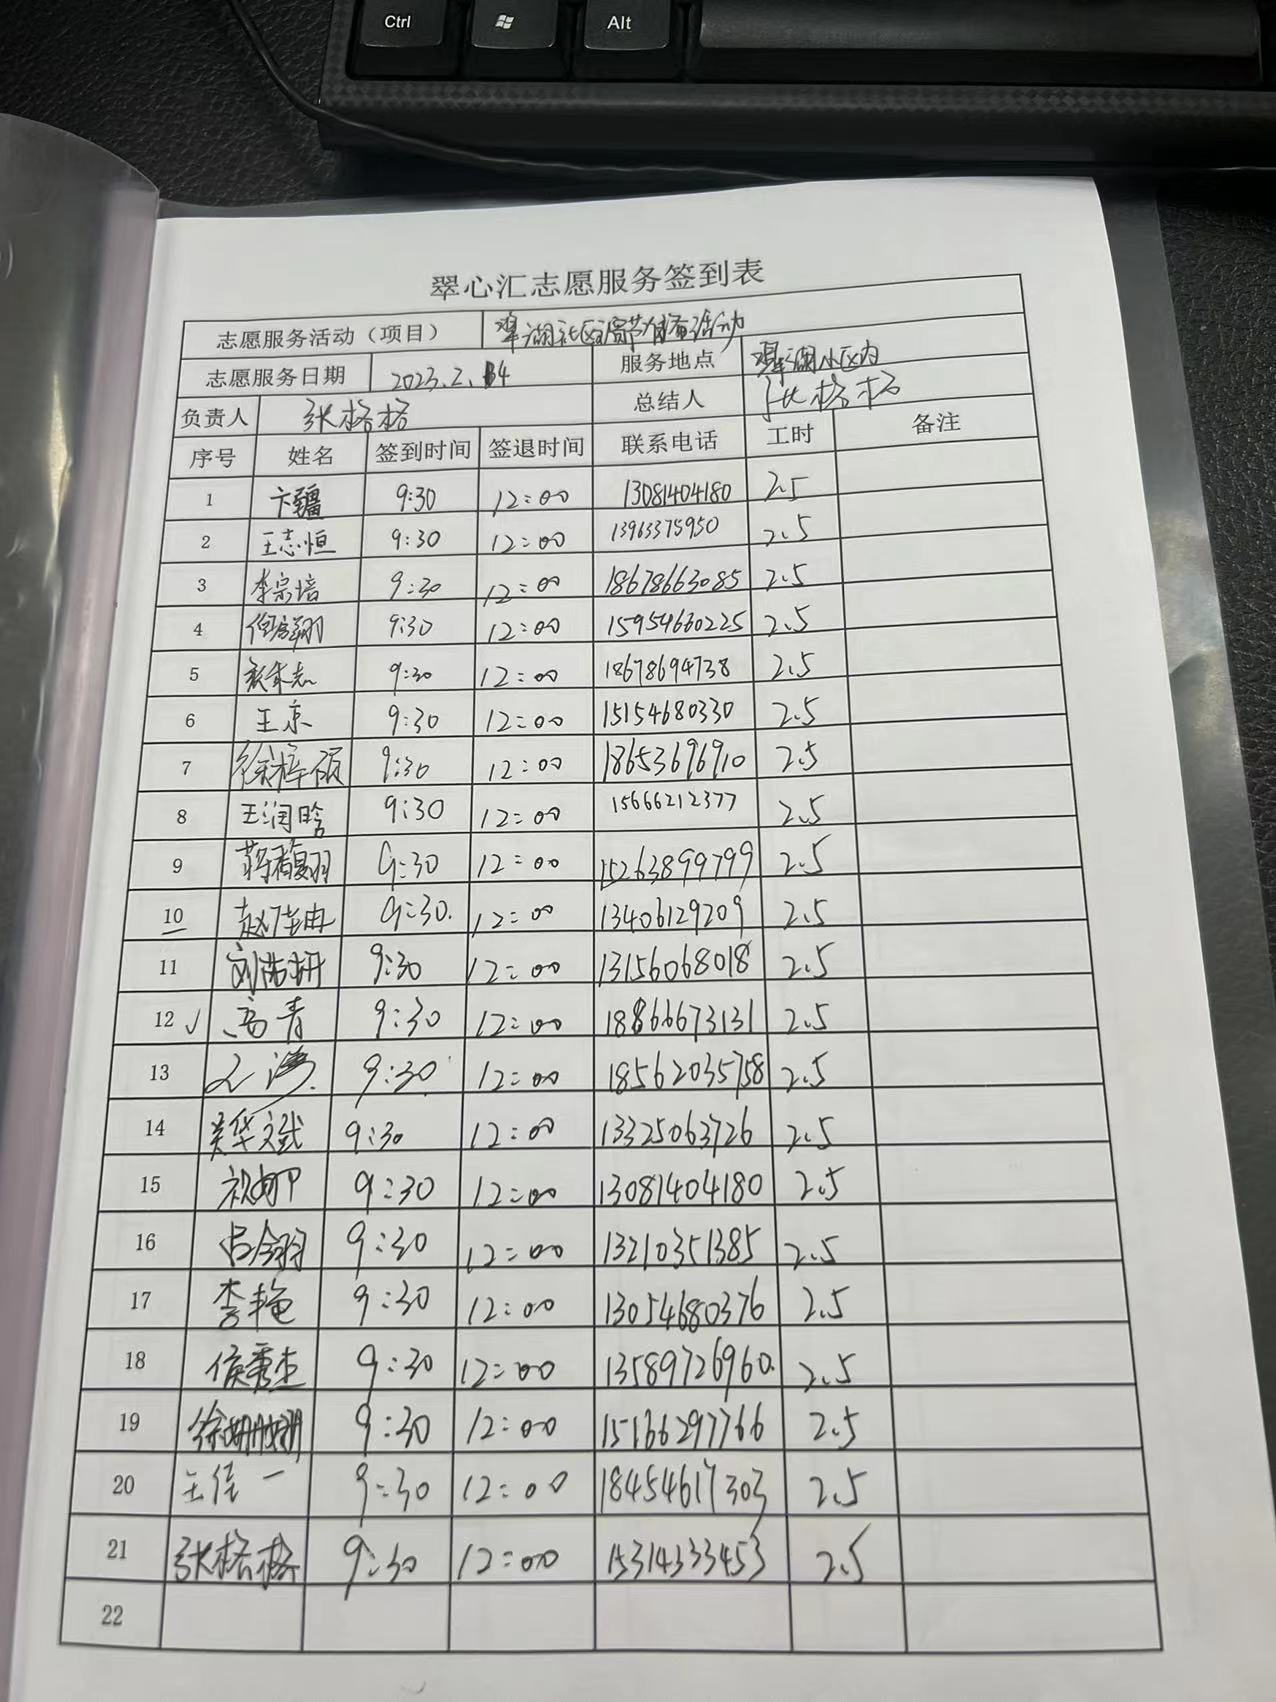 Ctrl Alt
翠心汇志愿服务签到表
志愿服务活动（项目） 翠湖社区 活动
志愿服务日期 2023.2.4 服务地点 翠湖小区内
负责人 张格格 总结人 张格格
序号 姓名 签到时间 签退时间 联系电话 工时 备注
1 卞疆 9:30 12:00 13081404180 2.5
2 王志恒 9:30 12:00 13963375950 2.5
3 李宗培 9:30 12:00 18678663085 2.5
4 9:30 12:00 15954660225 2.5
5 9:30 12:00 18678694738 2.5
6 王京 9:30 12:00 15154680330 2.5
7 徐梓硕 9:30 12:00 18653696910 2.5
8 王润晗 9:30 12:00 15666212377 2.5
9 蒋馥羽 9:30 12:00 15263899799 2.5
10 9:30 12:00 13406129209 2.5
11 9:30 12:00 13156068018 2.5
12 高青 9:30 12:00 18866673131 2.5
13 9:30 12:00 18562035758 2.5
14 吴华斌 9:30 12:00 13325063726 2.5
15 9:30 12:00 13081404180 2.5
16 9:30 12:00 13210351385 2.5
17 李艳 9:30 12:00 13054680376 2.5
18 侯秀杰 9:30 12:00 13589726960 2.5
19 徐姗姗 9:30 12:00 15166297766 2.5
20 王佳一 9:30 12:00 18454617303 2.5
21 张格格 9:30 12:00 15314333453 2.5
22